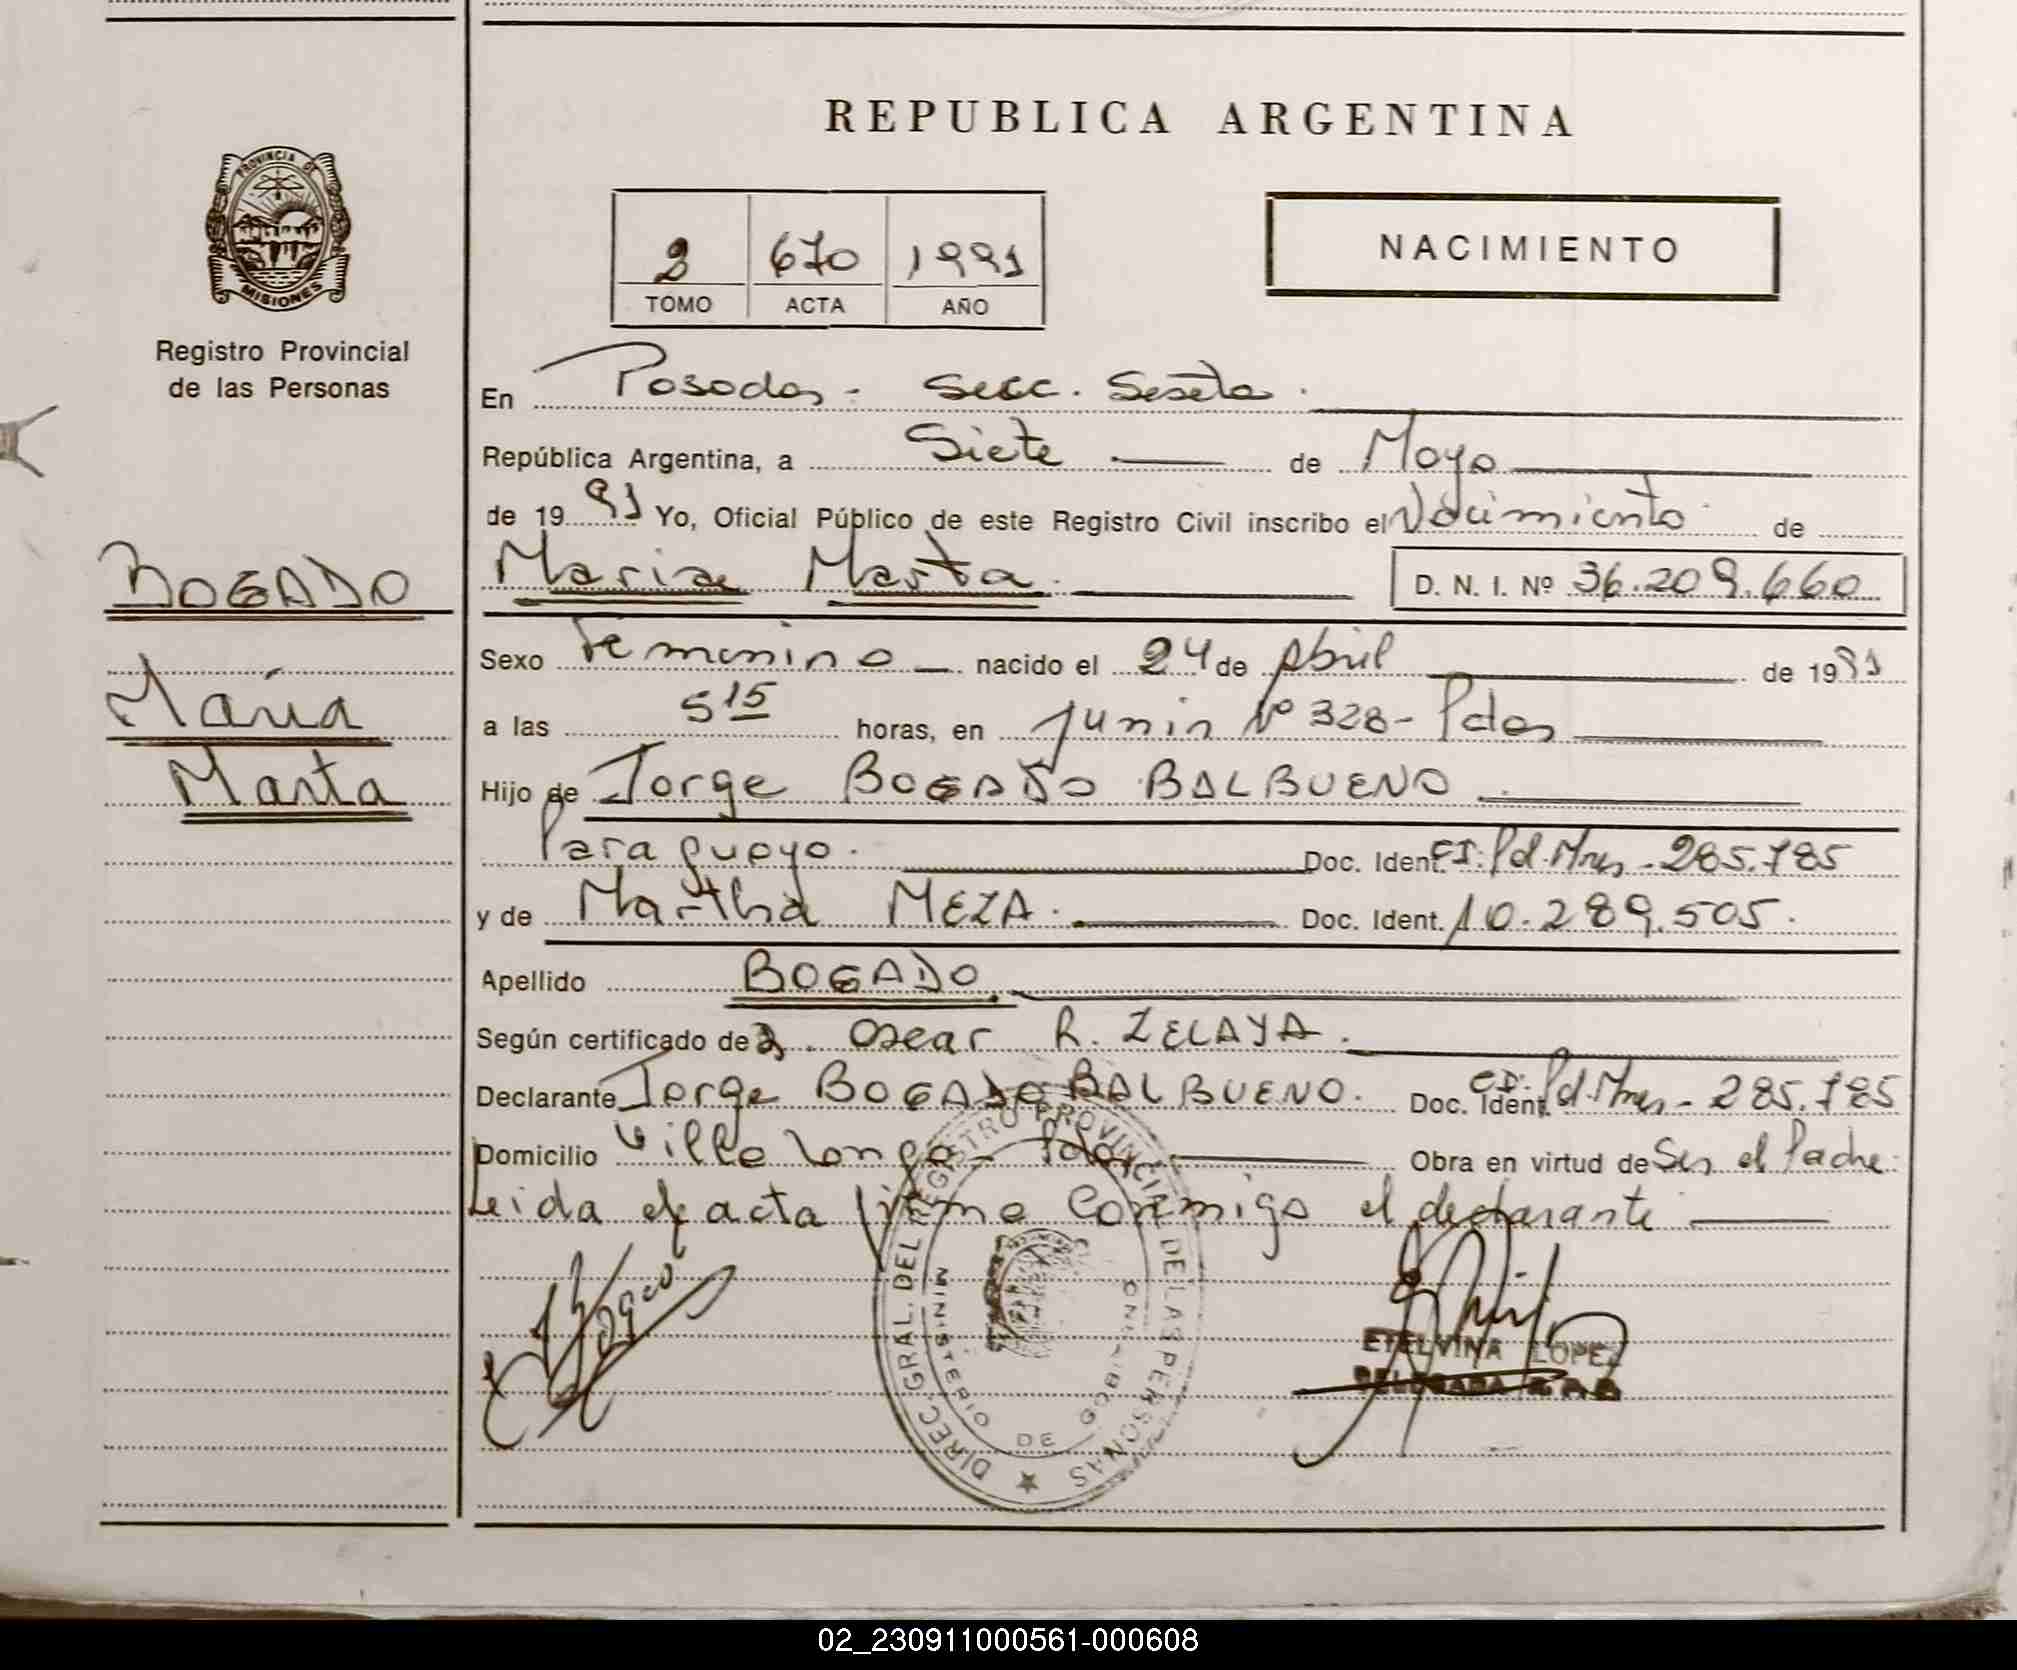 REPUBLICA ARGENTINA
PROVINCIA DE
MISIONES
Registro Provincial
de las Personas
2 670 1991
TOMO ACTA AÑO
NACIMIENTO
En Posadas - Secc. Sexta.
República Argentina, a Siete de Mayo
de 1991 Yo, Oficial Público de este Registro Civil inscribo el Nacimiento de
BOGADO
María
Marta
Maria Marta. D. N. I. Nº 36.209.660
Sexo Femenino nacido el 24 de Abril de 1991
a las 5 15 horas, en Junin Nº 328 - Pdas
Hijo de Jorge BOGADO BALBUENO
Paraguayo. Doc. Ident. CI. Pd. Mnes - 285.785
y de Martha MEZA. Doc. Ident. 10.289.505.
Apellido BOGADO.
Según certificado de Oscar R. ZELAYA.
Declarante Jorge BOGADO BALBUENO. Doc. Ident. CI. Pd. Mnes - 285.785
Domicilio Villa Longa - Pdas Obra en virtud de Ser el Padre
Leida el acta firma conmigo el declarante
DIREC. GRAL. DEL REGISTRO PROVINCIAL DE LAS PERSONAS
MINISTERIO DE GOBIERNO
ETELVINA LOPEZ
DELEGADA
02_230911000561-000608